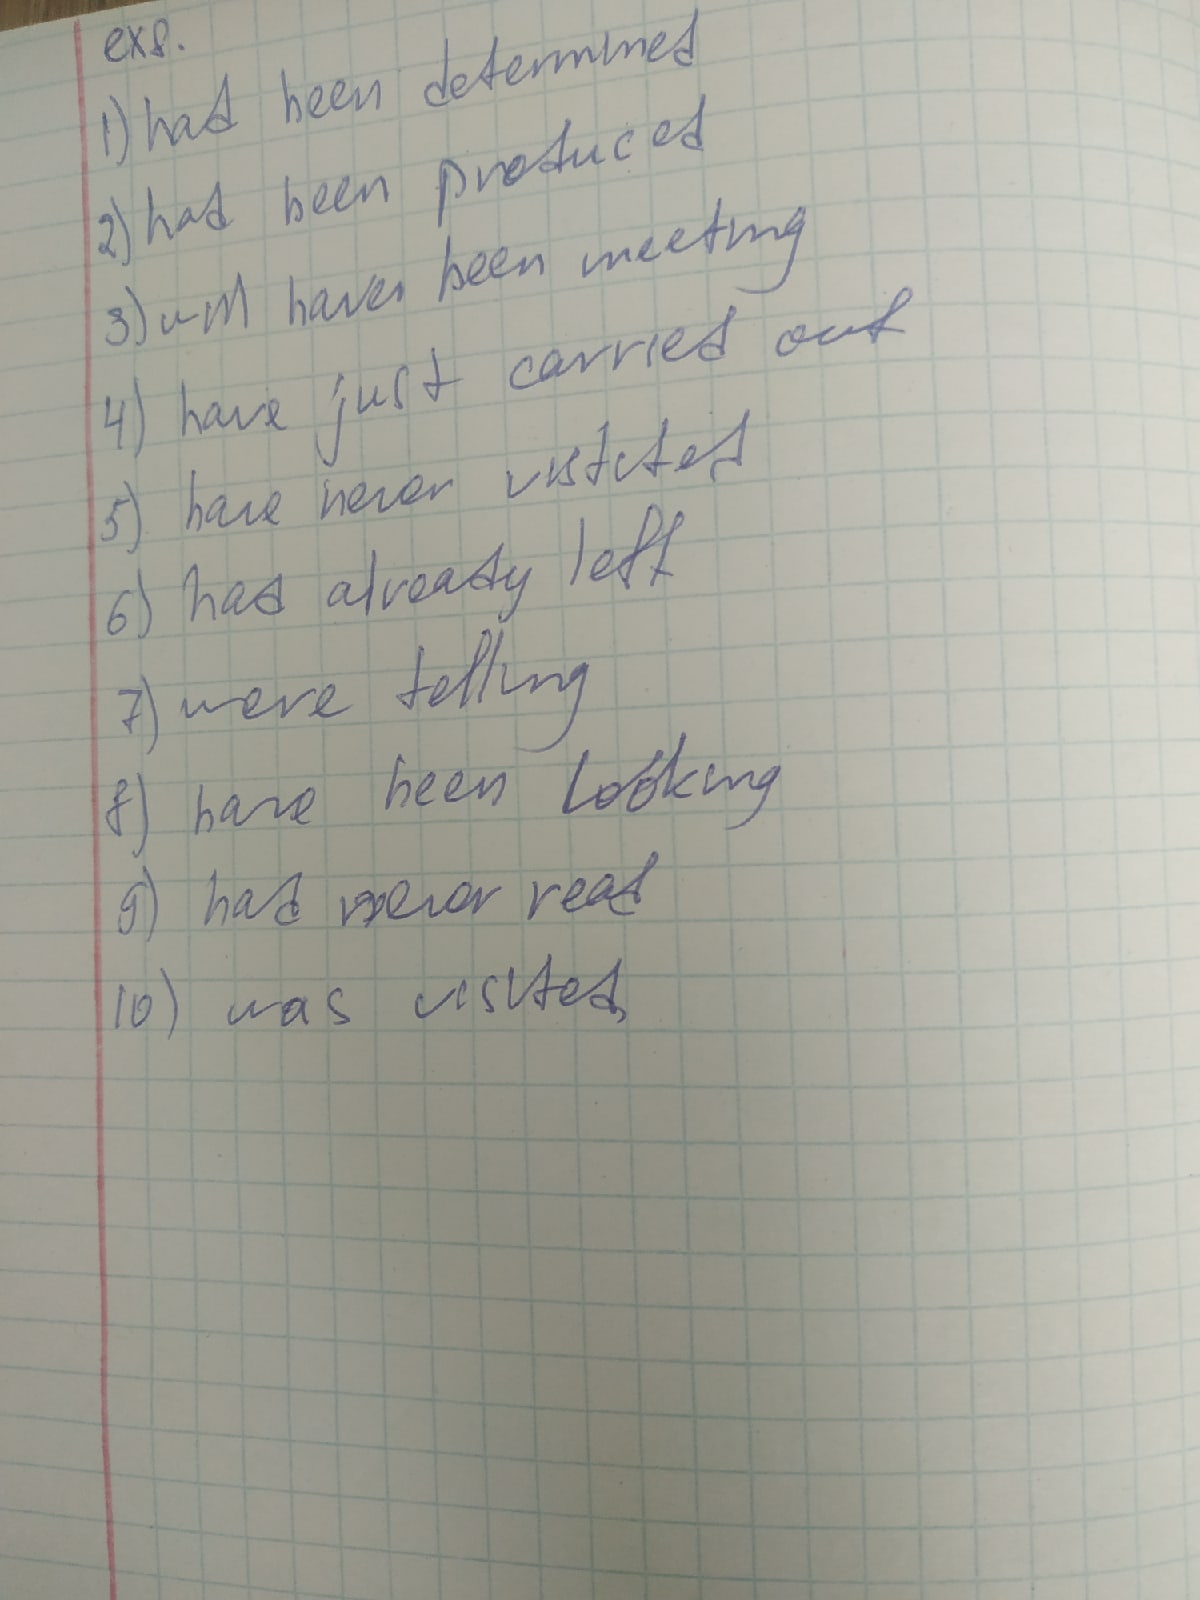 ex8.
1) had been determined
2) had been produced
3) will have been meeting
4) have just carried out
5) have never visited
6) had already left
7) were telling
8) have been looking
9) had never read
10) was visited